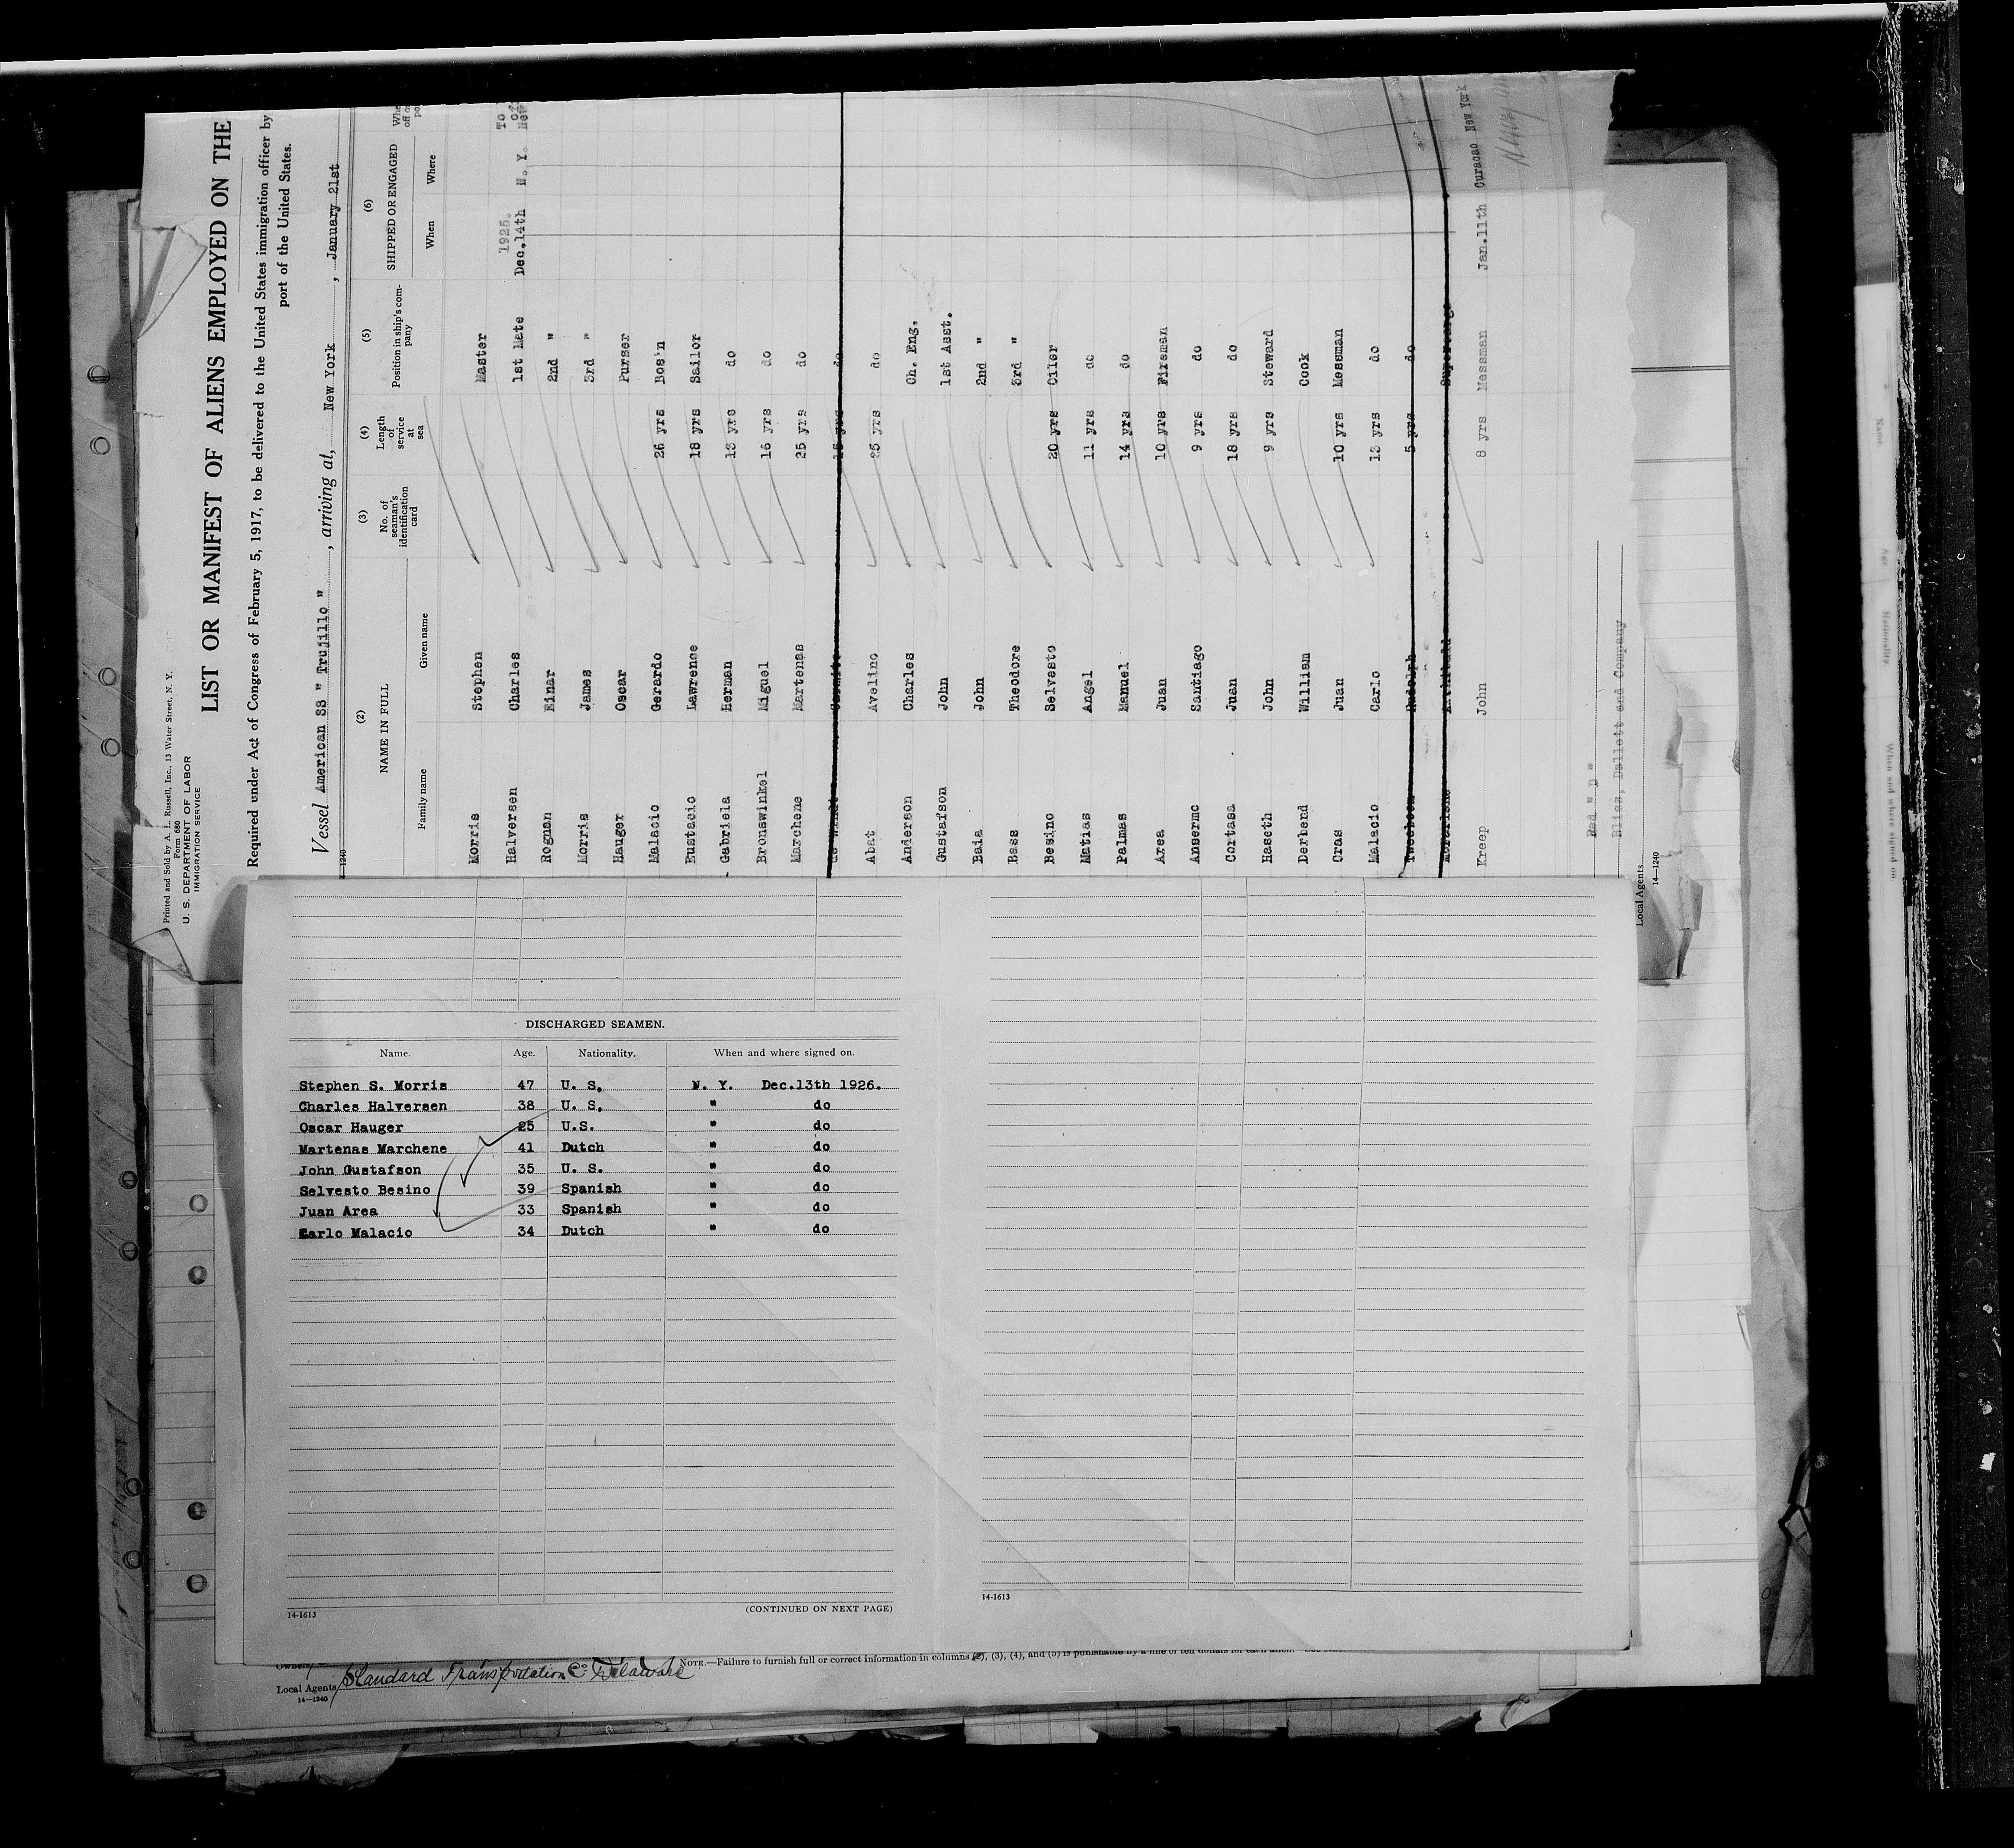 Printed and Sold by A. L. Russell, Inc., 13 Water Street, N. Y.
Form 680
U. S. DEPARTMENT OF LABOR
IMMIGRATION SERVICE
LIST OR MANIFEST OF ALIENS EMPLOYED ON THE
Required under Act of Congress of February 5, 1917, to be delivered to the United States immigration officer by
port of the United States.
Vessel American SS " Trujillo " , arriving at, New York , January 21st
(2) (3) (4) (5) (6)
NAME IN FULL No. of seaman's identification card Length of service at sea Position in ship's company SHIPPED OR ENGAGED
Family name Given name When Where
Morris Stephen Master
1925. To
Halversen Charles 1st Mate Dec.14th N. Y.
Rognan Einar 2nd "
Morris James 3rd "
Hauger Oscar Purser
Malacio Gerardo 26 yrs Bos'n
Eustacio Lawrence 18 yrs Sailor
Gabriela Herman 13 yrs do
Bronswinkel Miguel 16 yrs do
Marchene Martenas 25 yrs do
15 yrs do
Abat Avelino 25 yrs do
Anderson Charles Ch. Eng.
Gustafson John 1st Asst.
Baia John 2nd "
Bass Theodore 3rd "
Besino Selvesto 20 yrs Oiler
Matias Angel 11 yrs do
Palmas Manuel 14 yrs do
Area Juan 10 yrs Fireman
Ansermo Santiago 9 yrs do
Cortasa Juan 18 yrs do
Haseth John 9 yrs Steward
Derbend William Cook
Oras Juan 10 yrs Messman
Malacio Carlo 13 yrs do
Rudolph 5 yrs do
Archibald
Kreep John 8 yrs Messman Jan.11th Curacao New York
Red " D "
Bliss, Dallett and Company
Local Agents
14—1240
DISCHARGED SEAMEN.
Name. Age. Nationality. When and where signed on.
Stephen S. Morris 47 U. S. N. Y. Dec.13th 1926.
Charles Halversen 38 U. S. " do
Oscar Hauger 25 U.S. " do
Martenas Marchene 41 Dutch " do
John Gustafson 35 U. S. " do
Selvesto Besino 39 Spanish " do
Juan Area 33 Spanish " do
Carlo Malacio 34 Dutch " do
14-1613 (CONTINUED ON NEXT PAGE)
14-1613
NOTE.—Failure to furnish full or correct information in columns (2), (3), (4), and (5) is punishable by a fine of ten dollars for each alien.
Local Agents Standard Transportation Co Delaware
14—1240